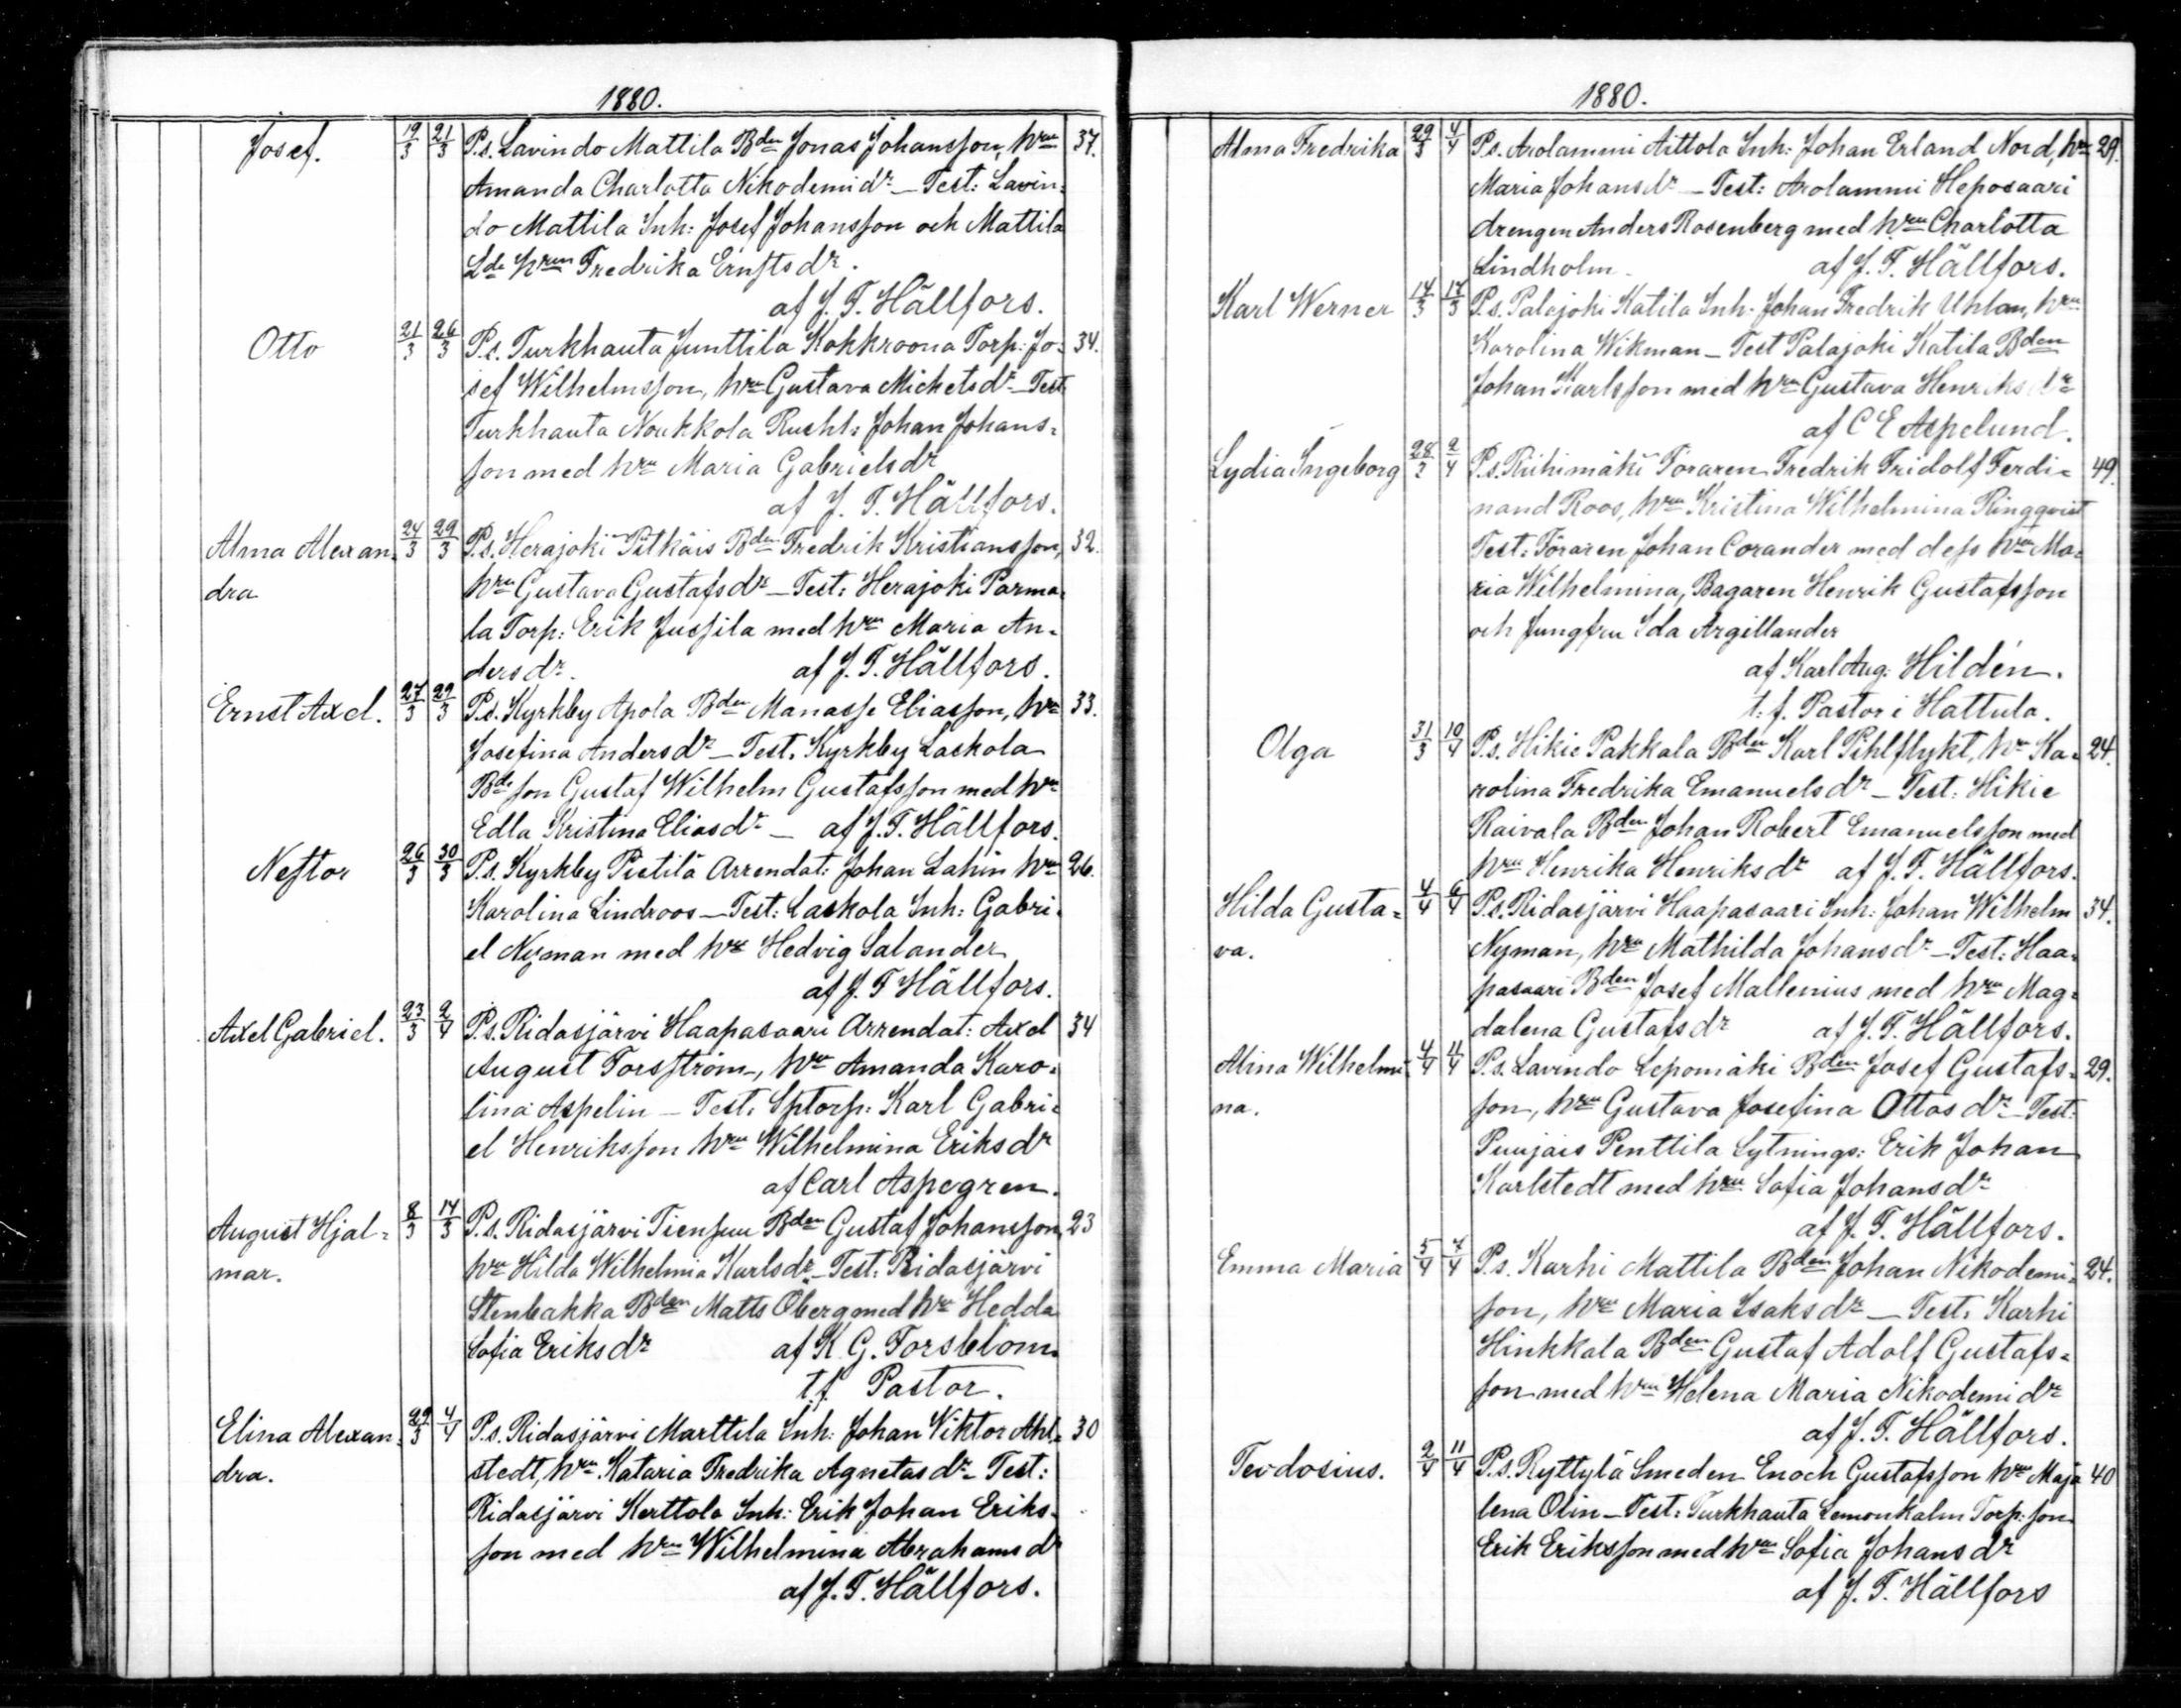 1880.
Josef. 19/3 21/3 P.s. Lavindo Mattila Bden Jonas Johansson, hru 37.
Amanda Charlotta Nikodemidr – Test: Lavin-
do Mattila Inh: Josef Johansson och Mattila
Lde hrun Fredrika Ernstsdr.
af J. F. Hällfors.
Otto 21/3 26/3 P.s. Turkhauta Junttila Kokkroona Torp: Jo- 34.
sef Wilhelmsson, hru Gustava Mickelsdr – Test
Turkhauta Noukkola Rusth: Johan Johans-
son med hru Maria Gabrielsdr
af J. F. Hällfors.
Alma Alexan- 24/3 29/3 P.s. Herajoki Pitkäis Bden Fredrik Kristiansson, 32.
dra hru Gustava Gustafsdr – Test: Herajoki Parma-
la Torp: Erik Jussila med hru Maria An-
dersdr. af J. F. Hällfors.
Ernst Axel. 27/3 29/3 P.s. Kyrkby Apola Bden Manasse Eliasson, hru 33.
Josefina Andersdr – Test. Kyrkby Laskola
Bde son Gustaf Wilhelm Gustafsson med hru
Edla Kristina Eliasdr – af J. F. Hällfors.
Nestor 26/3 30/3 P.s. Kyrkby Pietilä Arrendat: Johan Lahin hru 26.
Karolina Lindroos – Test: Laskola Inh: Gabri-
el Nyman med hru Hedvig Salander
af J. F Hällfors.
Axel Gabriel. 23/3 2/4 P.s. Ridasjärvi Haapasaari Arrendat: Axel 34
August Forsström, hru Amanda Karo-
lina Aspelin – Test: Sptorp: Karl Gabri-
el Henriksson hru Wilhelmina Eriksdr
af Carl Aspegren.
August Hjal- 8/3 14/3 P.s. Ridasjärvi Tiensuu Bden Gustaf Johansson, 23
mar. hru Hilda Wilhelmia Karlsdr – Test: Ridasjärvi
Stenbakka Bden Matts Öberg med hru Hedda
Sofia Eriksdr af K. G. Forsblom
tf Pastor.
Elina Alexan- 29/3 4/4 P.s. Ridasjärvi Marttila Inh: Johan Viktor Ahl- 30
dra. stedt, hru Kataria Fredrika Agnetasdr – Test:
Ridasjärvi Kerttola Inh: Erik Johan Eriks-
son med hru Wilhelmina Abrahamsdr
af J. F. Hällfors.
1880.
Alma Fredrika 29/3 4/4 P.s. Arolammi Aittola Inh: Johan Erland Nord, hru 29.
Maria Johansdr – Test: Arolammi Heposaari
drengen Anders Rosenberg med hru Charlotta
Lindholm. af J. F. Hällfors.
Karl Werner 14/3 17/3 P.s. Palajoki Katila Inh: Johan Fredrik Uhlan, hru
Karolina Wikman – Test Palajoki Katila Bden
Johan Karlsson med hru Gustava Henriksdr
af C E Aspelund.
Lydia Ingeborg 28/2 2/4 P.s. Riihimäki Föraren Fredrik Fridolf Ferdi- 49.
nand Roos, hru Kristina Wilhelmina Ringqvist
Test: Föraren Johan Corander med dess hru Ma-
ria Wilhelmina, Bagaren Henrik Gustafsson
och Jungfru Ida Argillander
af Karl Aug: Hildén.
t. f. Pastor i Hattula.
Olga 31/3 10/4 P.s. Hikie Pakkala Bden Karl Pihlflykt, hru Ka- 24.
rolina Fredrika Emanuelsdr – Test: Hikie
Raivala Bden Johan Robert Emanuelsson med
hru Henrika Henriksdr af J. F. Hällfors.
Hilda Gusta- 4/4 6/4 P.s. Ridasjärvi Haapasaari Inh: Johan Wilhelm 34.
va. Nyman, hru Mathilda Johansdr – Test: Haa-
pasaari Bden Josef Mallenius med hru Mag-
dalena Gustafsdr af J. F. Hällfors.
Alina Wilhelmi- 4/4 11/4 P.s. Lavindo Lepomäki Bden Josef Gustafs- 29.
na. son, hru Gustava Josefina Ottosdr – Test:
Puujais Penttila Lytnings: Erik Johan
Karlstedt med hru Sofia Johansdr
af J. F. Hällfors.
Emma Maria 5/4 7/4 P.s. Karhi Mattila Bden Johan Nikodemi- 24.
son, hru Maria Isaksdr – Test: Karhi
Hinkkala Bden Gustaf Adolf Gustafs-
son med hru Helena Maria Nikodemidr
af J. F. Hällfors.
Teodosius. 2/4 11/4 P.s. Ryttylä Smeden Enoch Gustafsson hru Maja 40
lena Olin – Test: Turkhauta Lemonkalm Torp: son
Erik Eriksson med hru Sofia Johansdr
af J. F. Hällfors